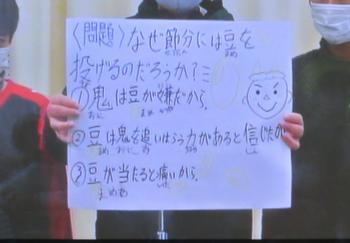 〈問題〉なぜ節分には豆を
投げるのだろうか?
①鬼は豆が嫌だから。
②豆は鬼を追いはらう力があると信じたか
③豆が当たると痛いから。